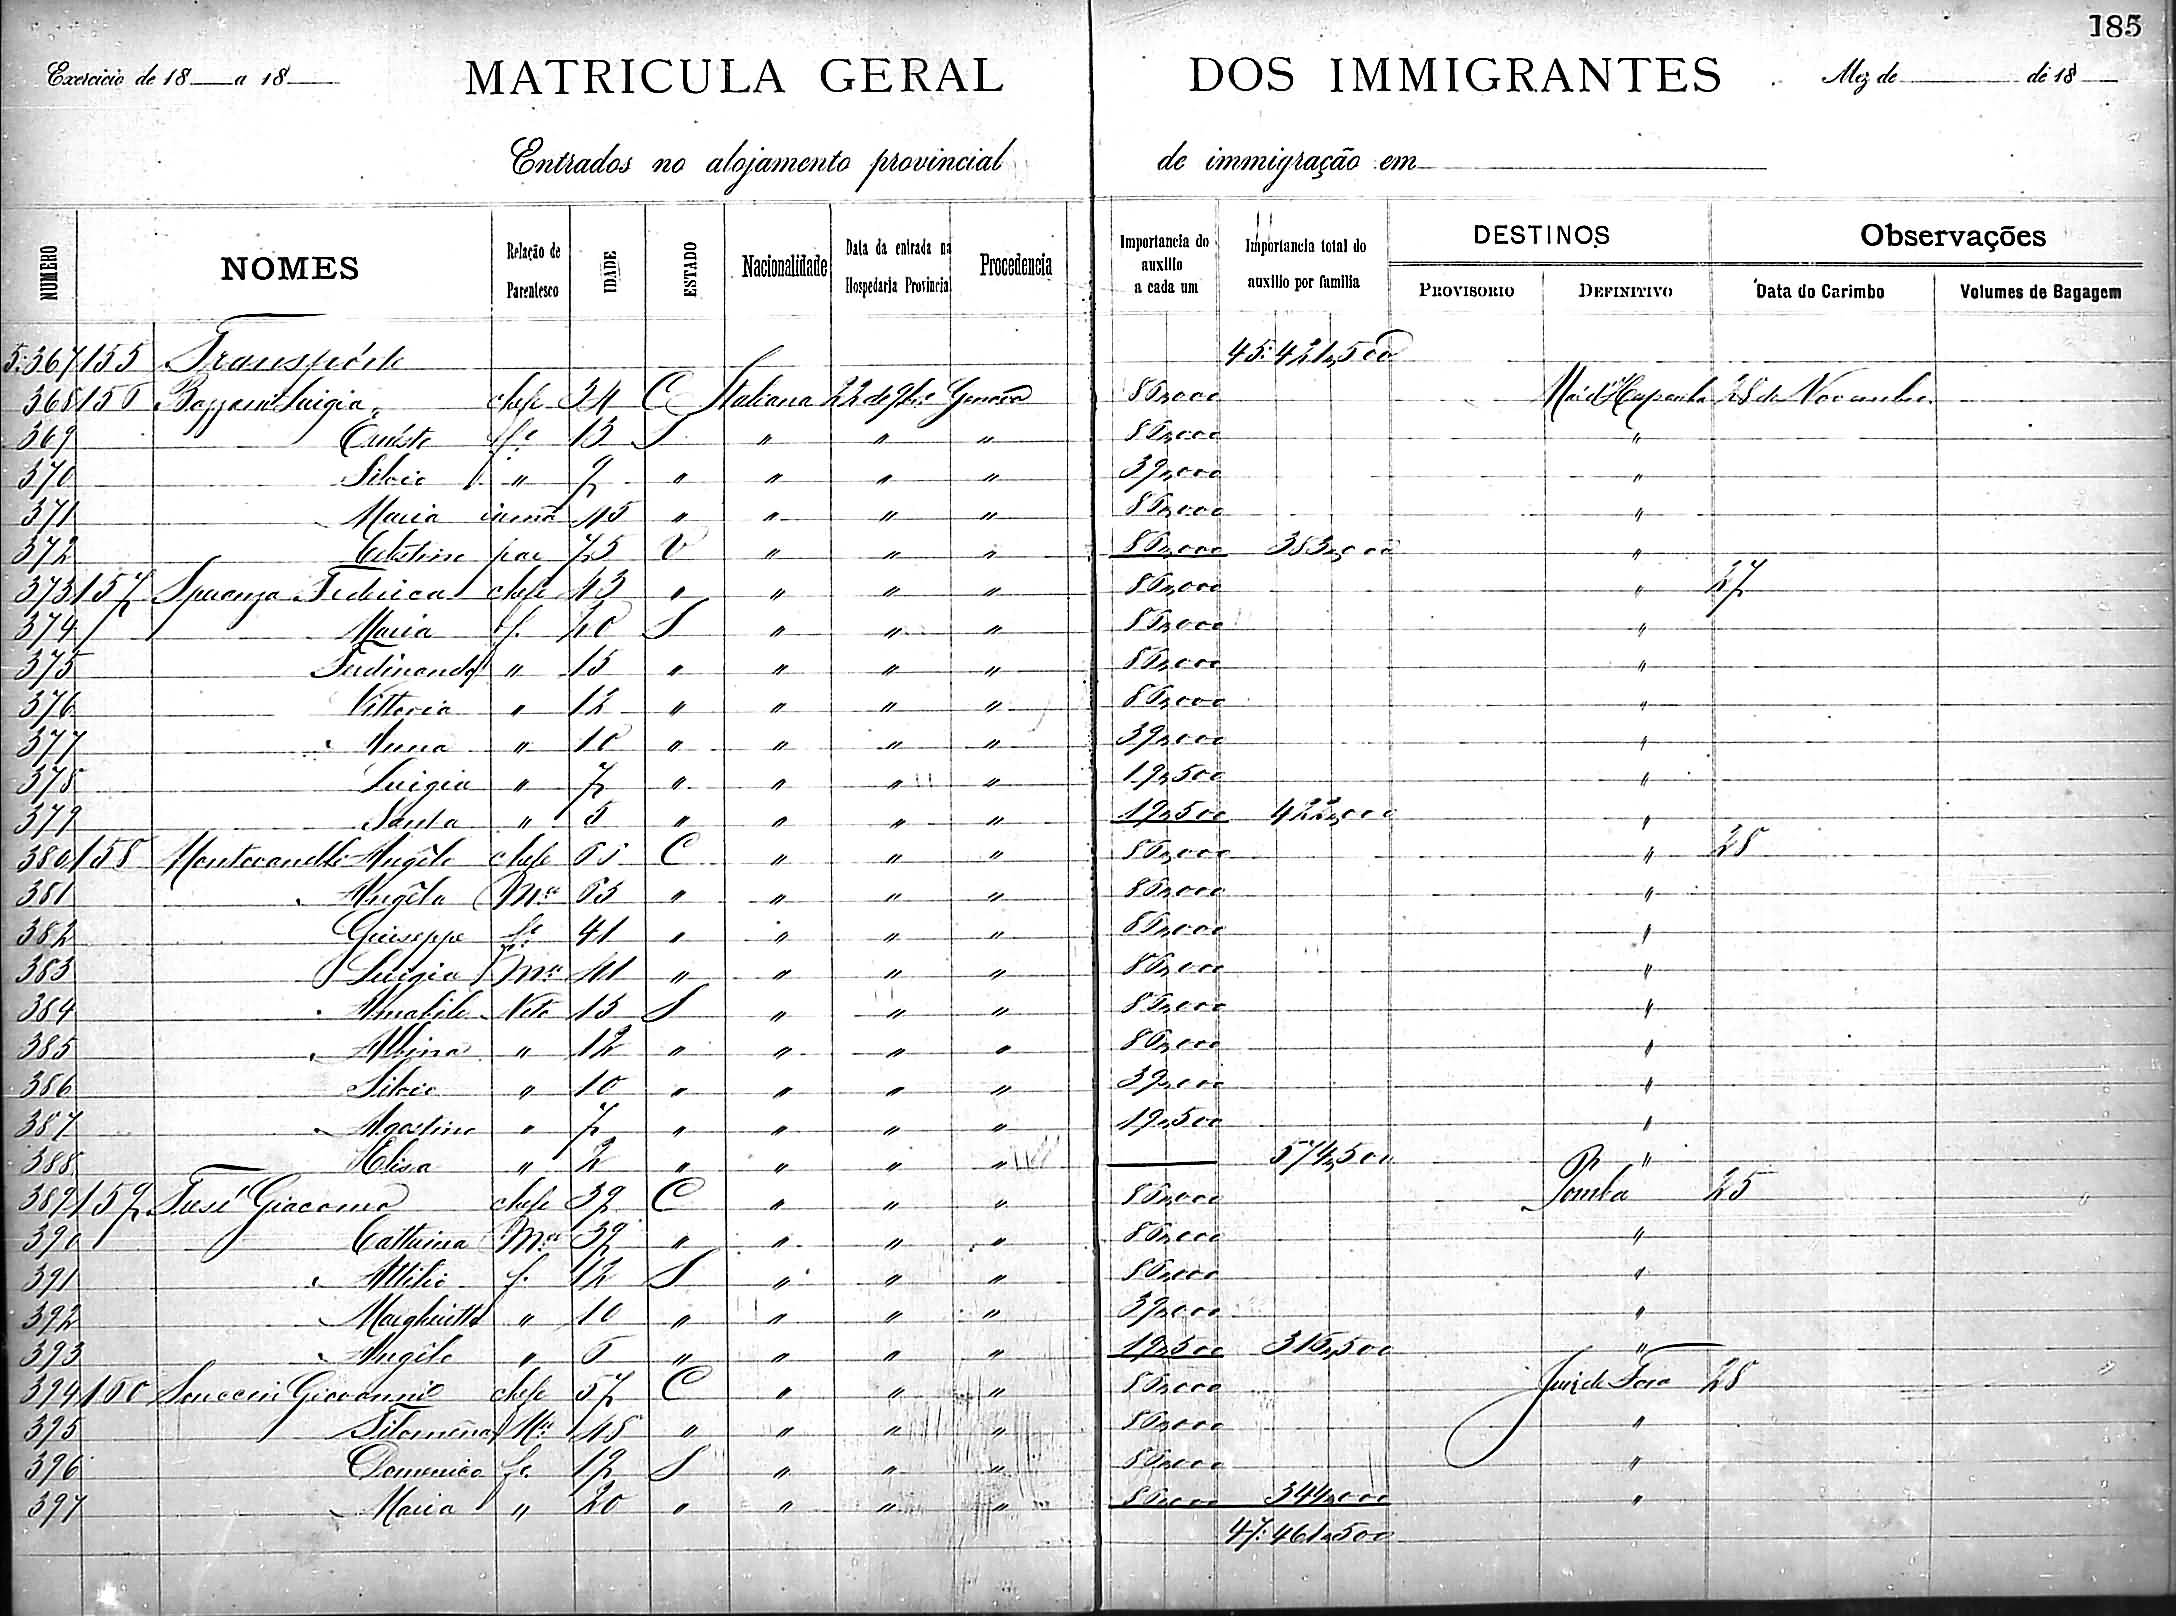 185
Exercicio de 18 a 18 MATRICULA GERAL DOS IMMIGRANTES Mez de de 18
Entrados no alojamento provincial de immigração em
NUMERO NOMES Relação de Parentesco IDADE ESTADO Nacionalidade Data da entrada na Hospedaria Provincial Procedencia Importancia do auxilio a cada um Importancia total do auxilio por familia DESTINOS PROVISORIO DEFINITIVO Observações Data do Carimbo Volumes de Bagagem
5:367 155 Transporte 45:421,500
368 156 Luigia chefe 34 C Italiana 22 de 9bro Genova 86,000 Mar d'Hespanha 28 de Novembro
369 Ernesto fo 13 S " " " 86,000 "
370 Silvio " 9 " " " " 39,000 "
371 Maria irmã 45 " " " " 86,000 "
372 Celestino pae 75 V " " " 86,000 383,000 "
373 157 Speranza Federica chefe 43 " " " " 86,000 " 27
374 Maria f. 20 S " " " 86,000 "
375 Ferdinando " 15 " " " " 86,000 "
376 Vittoria " 12 " " " " 86,000 "
377 Anna " 10 " " " " 39,000 "
378 Luigia " 7 " " " " 19,500 "
379 Santa " 5 " " " " 19,500 422,000 "
380 158 Montovanelli Angelo chefe 65 C " " " 86,000 " 28
381 Angela Mer 63 " " " " 86,000 "
382 Giuseppe fo 41 " " " " 86,000 "
383 Luigia Mer 41 " " " " 86,000 "
384 Amabile Neto 13 S " " " 86,000 "
385 Albina " 12 " " " " 86,000 "
386 Silvio " 10 " " " " 39,000 "
387 Agostino " 7 " " " " 19,500 "
388 Elisa " 2 " " " " 574,500 "
389 159 Giacomo chefe 39 C " " " 86,000 Pomba 25
390 Catterina Mer 39 " " " " 86,000 "
391 Attilio f. 12 S " " " 86,000 "
392 Margheritta " 10 " " " " 39,000 "
393 Angelo " 6 " " " " 19,500 316,500 "
394 160 Soncein Giovanni chefe 57 C " " " 86,000 Juiz de Fora 28
395 Filomena Mer 48 " " " " 86,000 "
396 Domenico fo 19 S " " " 86,000 "
397 Maria " 20 " " " " 86,000 344,000 "
47:461,500